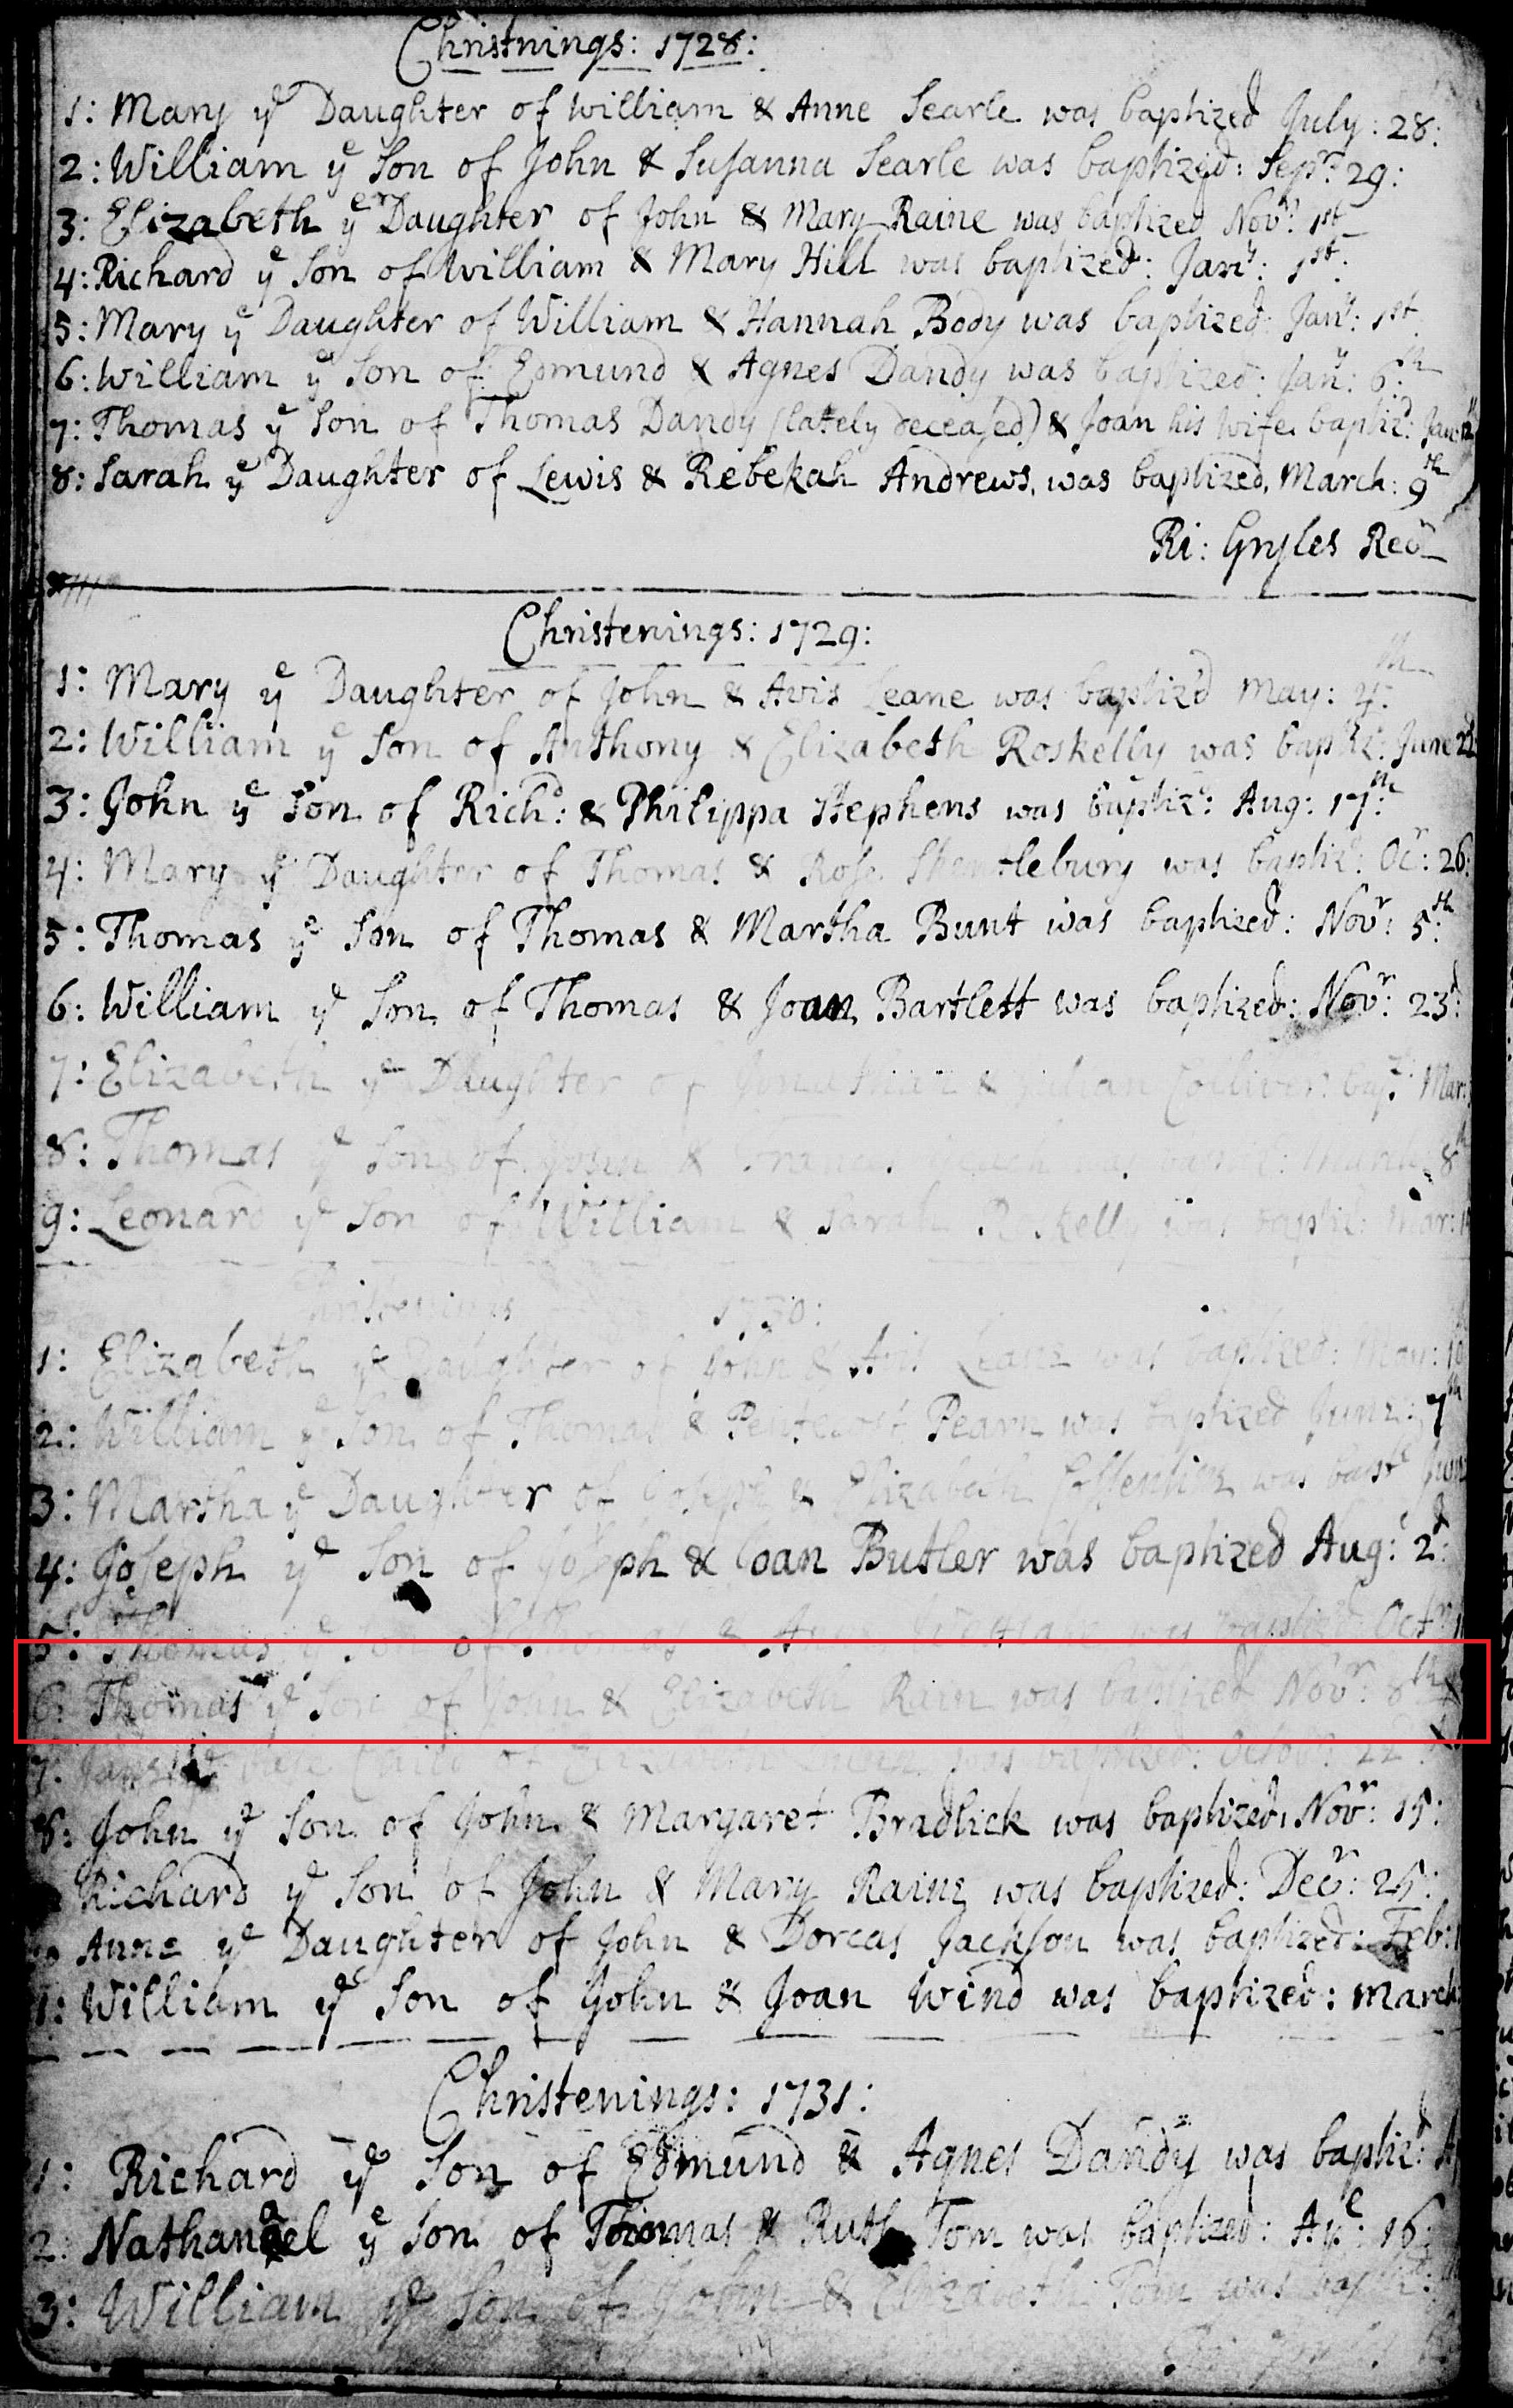 Christnings: 1728:
1: Mary yͤ Daughter of William & Anne Searle was baptized July: 28:
2: William yͤ Son of John & Susanna Searle was baptized: Sepʳ: 29:
3: Elizabeth yͤ Daughter of John & Mary Raine was baptized Novʳ: 1st
4: Richard yͤ Son of William & Mary Hill was baptized: Janʸ: 1st:
5: Mary yͤ Daughter of William & Hannah Body was baptized: Janʸ: 1st
6: William yͤ Son of Edmund & Agnes Dandy was baptized: Janʸ: 6:th
7: Thomas yͤ Son of Thomas Dandy (lately deceased) & Joan his Wife baptizd: Jan: 12
8: Sarah yͤ Daughter of Lewis & Rebekah Andrews, was baptized, March: 9th
Ri: Gryles Recʳ
Christenings: 1729:
1: Mary yͤ Daughter of John & Avis Leane was baptiz'd May: 4:th
2: William yͤ Son of Anthony & Elizabeth Roskelly was baptizd: June 22
3: John yͤ Son of Richd: & Philippa Stephens was baptizd: Aug: 17:th
4: Mary yͤ Daughter of Thomas & Rose was baptizd: Ocʳ: 26:
5: Thomas yͤ Son of Thomas & Martha Bunt was baptized: Novʳ: 5:th
6: William yͤ Son of Thomas & Joan Bartlett was baptized: Novʳ: 23d:
7: Elizabeth yͤ Daughter of & Colliver: Mar:
8: Thomas yͤ Son of John & was March 8
9: Leonard yͤ Son of William & Sarah Roskelly was baptiz: Mar:
Christenings 1730:
1: Elizabeth yͤ Daughter of John & Avis Leane was baptized: May: 10
2: William yͤ Son of Thomas & Pentecost Pearn was baptized June: 7th
3: Martha yͤ Daughter of Joseph & Elizabeth was bapt June
4: Joseph yͤ Son of Joseph & Joan Butler was baptized Aug: 2d:
5: Thomas yͤ Son of Thomas & was baptized Octʳ
6: Thomas yͤ Son of John & Elizabeth Rain was baptized Novʳ: 8th
7: base Child of Elizabeth was baptized: Octobʳ: 22
8: John yͤ Son of John & Margaret Bradlick was baptized, Novʳ: 15:
Richard yͤ Son of John & Mary Raine was baptized: Decʳ: 25:
Anne yͤ Daughter of John & Dorcas Jackson was baptized: Feb:
1: William yͤ Son of John & Joan Wind was baptized: March
Christenings: 1731:
1: Richard yͤ Son of Edmund & Agnes Dandy was baptizd: A
2: Nathanael yͤ Son of Thomas & Ruth Tom was baptized: Apˡ: 16
3: William yͤ Son of John & Elizabeth Tom was baptizd: